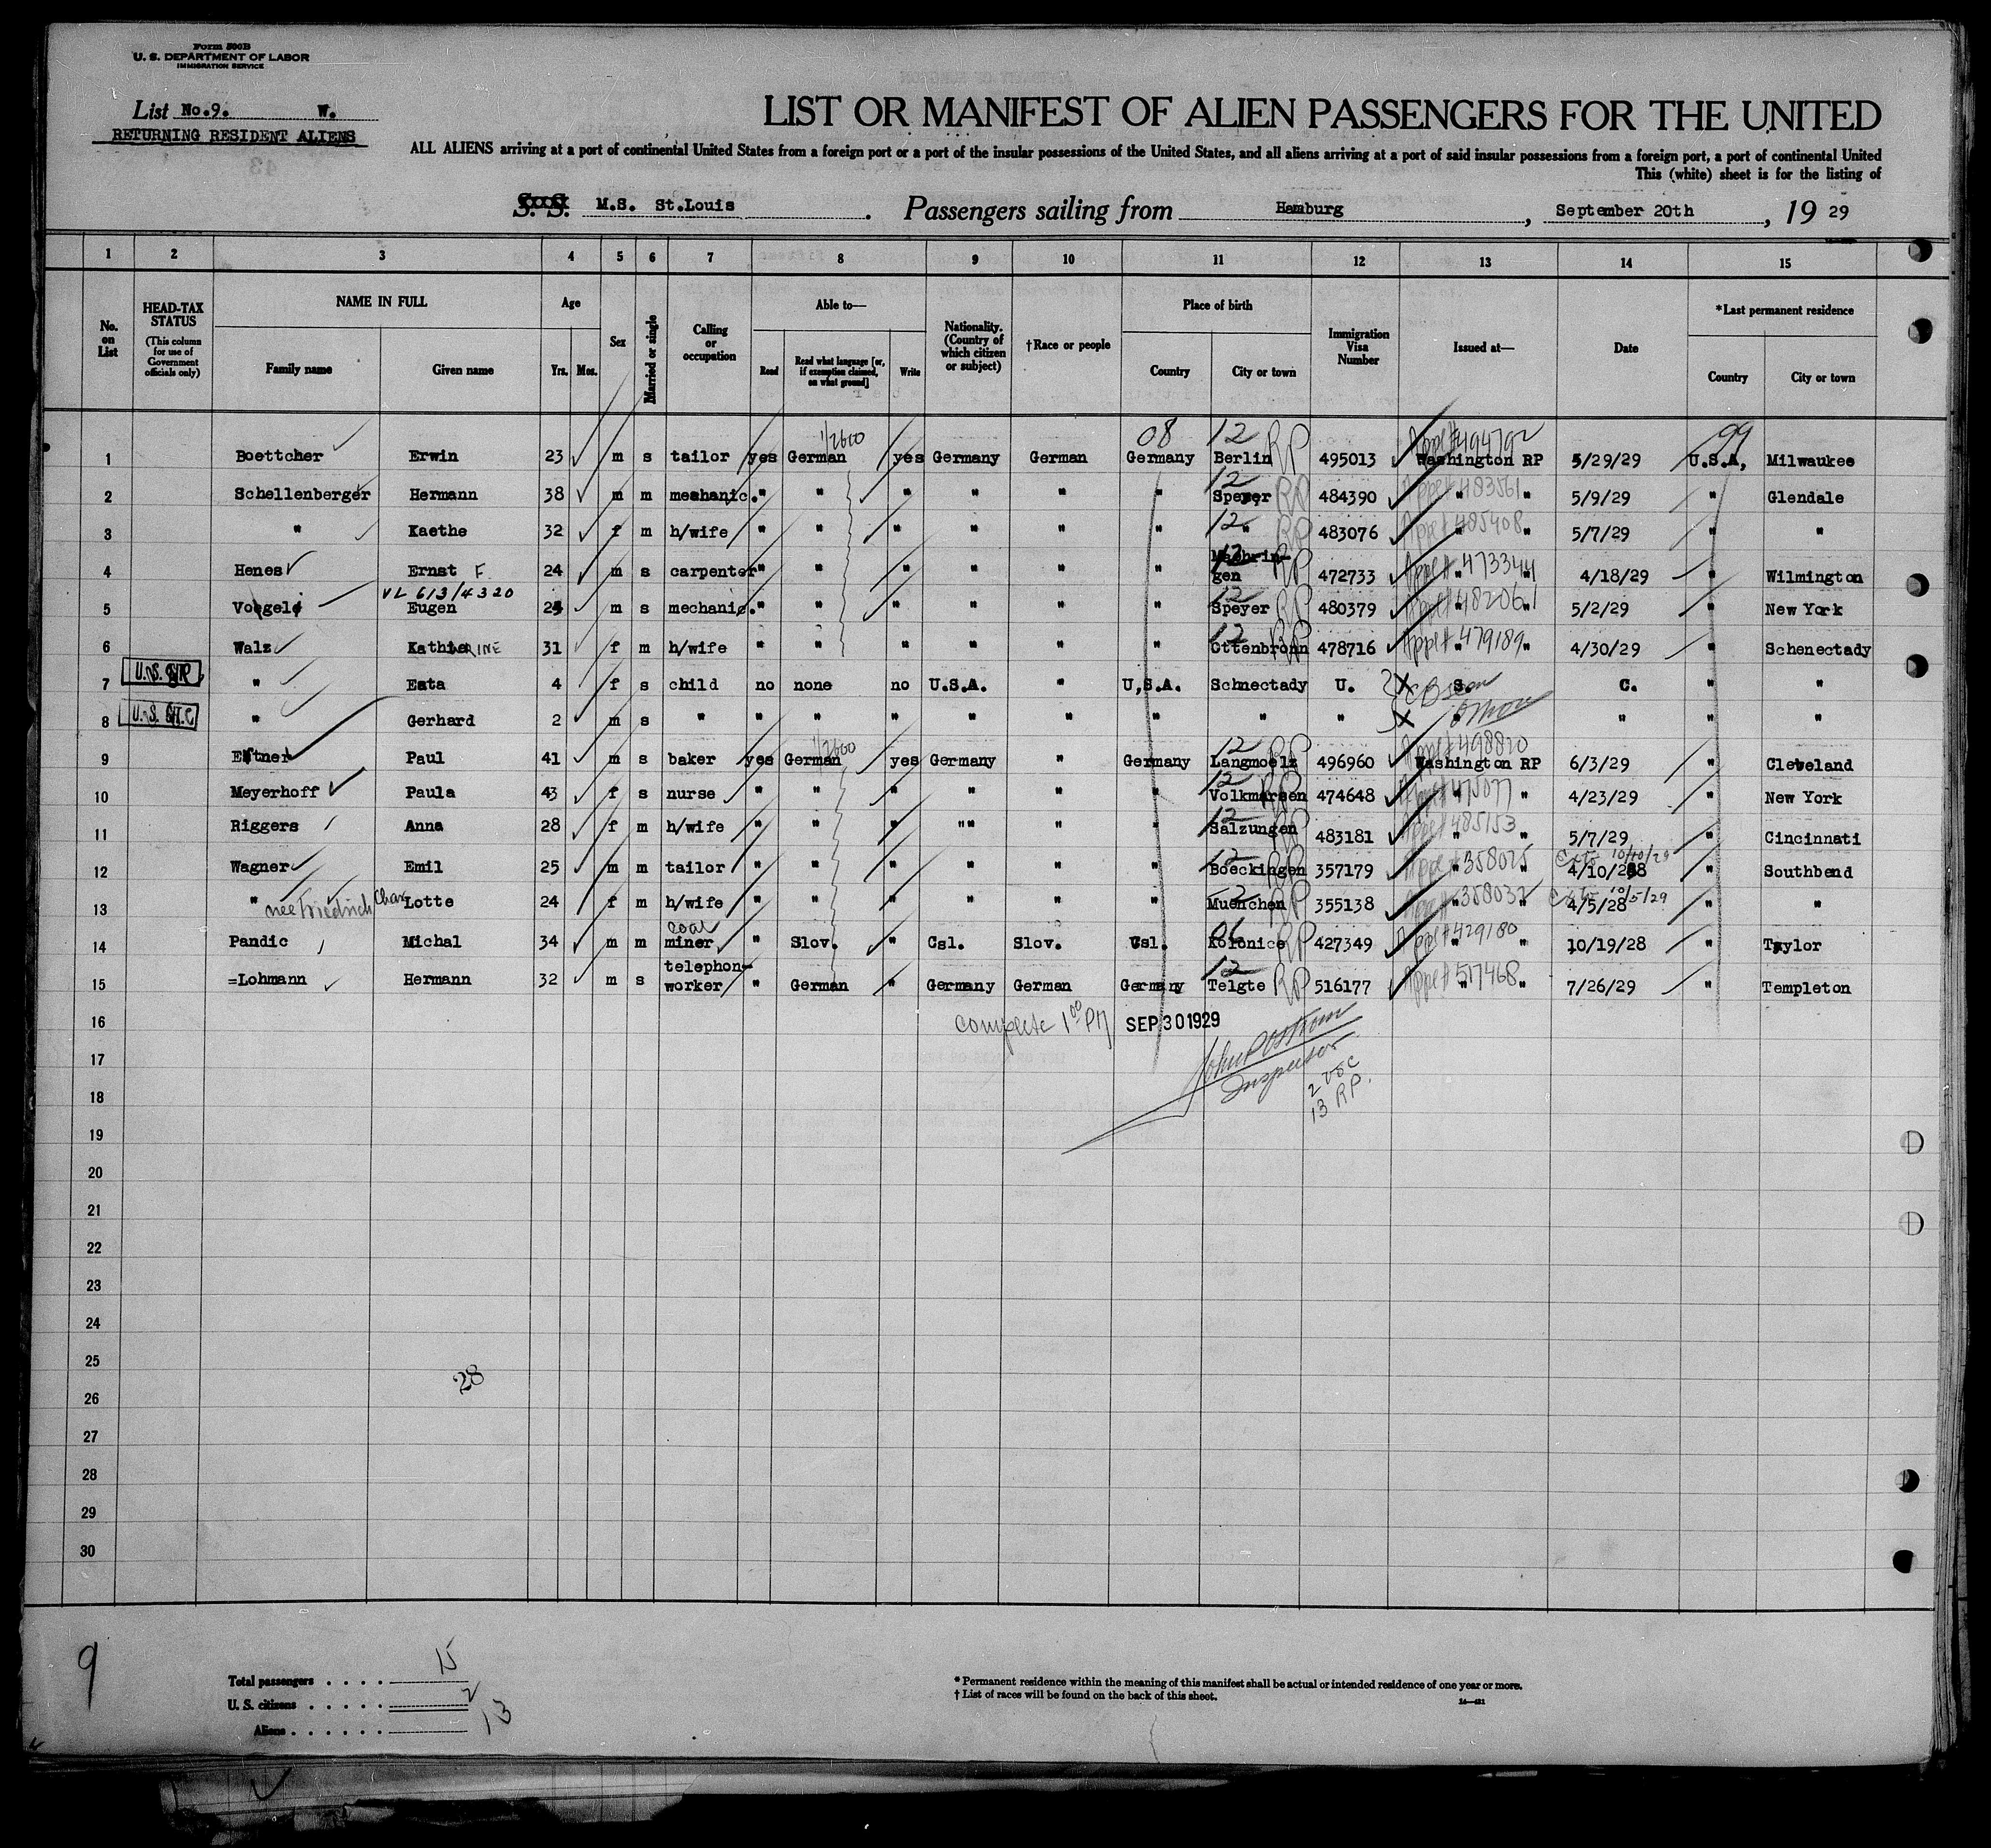 Form 500B
U. S. DEPARTMENT OF LABOR
IMMIGRATION SERVICE
List No.9. W.
RETURNING RESIDENT ALIENS
LIST OR MANIFEST OF ALIEN PASSENGERS FOR THE UNITED
ALL ALIENS arriving at a port of continental United States from a foreign port or a port of the insular possessions of the United States, and all aliens arriving at a port of said insular possessions from a foreign port, a port of continental United
This (white) sheet is for the listing of
S. S. M.S. St.Louis . Passengers sailing from Hamburg , September 20th , 19 29
1 2 3 4 5 6 7 8 9 10 11 12 13 14 15
No. on List
HEAD-TAX STATUS
(This column for use of Government officials only)
NAME IN FULL
Family name Given name
Age
Yrs. Mos.
Sex
Married or single
Calling or occupation
Able to—
Read
Read what language [or, if exemption claimed, on what ground]
Write
Nationality. (Country of which citizen or subject)
†Race or people
Place of birth
Country City or town
Immigration Visa Number
Issued at—
Date
*Last permanent residence
Country City or town
1/2600 08 12 Appl# 494792 99
1 Boettcher Erwin 23 m s tailor yes German yes Germany German Germany Berlin RP 495013 Washington RP 5/29/29 U.S.A, Milwaukee
12
2 Schellenberger Hermann 38 m m mechanic. " " " " " " Speyer RP 484390 Appl# 483561 " " 5/9/29 " Glendale
3 " Kaethe 32 f m h/wife " " " " " " 12 " RP 483076 Appl# 485408 " " 5/7/29 " "
4 Henes Ernst F. 24 m s carpenter " " " " " " 12 Maehrin-gen RP 472733 Appl# 473344 " " 4/18/29 " Wilmington
VL 613/4320
5 Voegele Eugen 24 m s mechanic. " " " " " " 12 Speyer RP 480379 Appl# 482061 " " 5/2/29 " New York
6 Walz KathERINE 31 f m h/wife " " " " " " 12 Ottenbronn RP 478716 Appl# 479189 " " 4/30/29 " Schenectady
7 U.S. " Eata 4 f s child no none no U.S.A. " U,S.A. Schnectady U. X S. C. " "
8 U.S. " Gerhard 2 m s " " " " " " " " " X " " " "
1/2600 12 Appl# 498820
9 Paul 41 m s baker yes German yes Germany " Germany Langmoelz RP 496960 Washington RP 6/3/29 " Cleveland
10 Meyerhoff Paula 43 f s nurse " " " " " " 12 Volkmarsen RP 474648 Appl# 475077 " 4/23/29 " New York
11 Riggers Anna 28 f m h/wife " " " "" " " 12 Salzungen 483181 Appl# 485153 " " 5/7/29 " Cincinnati
12 Wagner Emil 25 m m tailor " " " " " " 12 Boeckingen RP 357179 Appl# 358025 " 4/10/28 10/10/29 " Southbend
13 " nee Friedrich Char Lotte 24 f m h/wife " " " " " " 12 Muenchen RP 355138 Appl# 358032 " " 4/5/28 10/5/29 " "
14 Pandic Michal 34 m m coal miner " Slov. " Csl. Slov. Csl. 06 Kolonice RP 427349 Appl# 429180 " " 10/19/28 " Taylor
15 =Lohmann Hermann 32 m s telephon-worker " German " Germany German Germany 12 Telgte RP 516177 Appl# 517468 " " 7/26/29 " Templeton
16 complete 1 00 PM SEP 30 1929
17 John P Ostrom
Inspector
2 USC
18 13 RP.
19
20
21
22
23
24
25
28
26
27
28
29
30
9
Total passengers . . . . 15
U. S. citizens . . . . 2
Aliens . . . . . . 13
* Permanent residence within the meaning of this manifest shall be actual or intended residence of one year or more.
† List of races will be found on the back of this sheet.